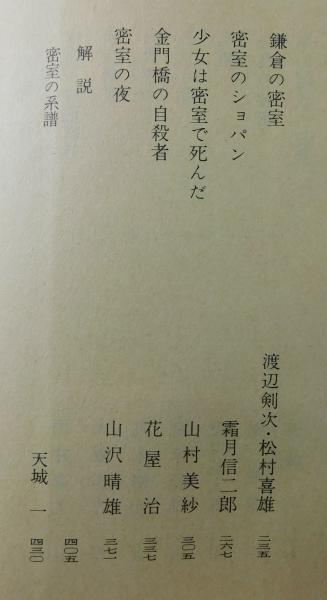 鎌倉の密室 渡辺剣次・松村喜雄 二三五
密室のショパン 霜月信二郎 二六七
少女は密室で死んだ 山村美紗 三〇五
金門橋の自殺者 花屋治 三三七
密室の夜 山沢晴雄 三七一
解説 四〇五
密室の系譜 天城一 四三〇